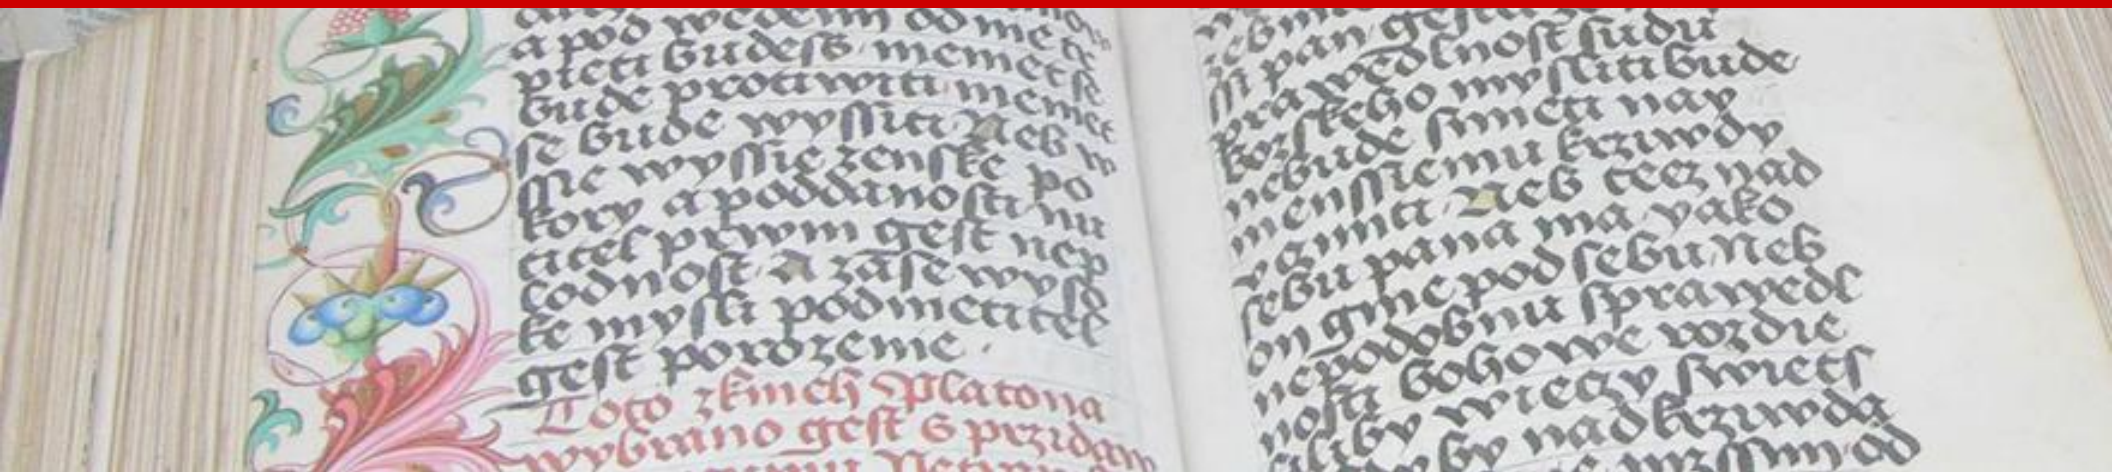 a pod wedenim od me te
pieti budess memet se
bude protiwiti memet
se bude wyssiti Neb w
ssie wyssie zenske po
kory a poddanosti nu
titel prwni gest nep
lodnost A zase wyso
ke mysli podmetitel
gest porozeme
Toto zknieh Platona
wybrano gest s przidan
si pan gest
prawedlnost sudu
bozskeho mysliti bude
nebude smieti nay
menssiemu krziwdy
vcziniti Neb teez nad
sebu pana ma yako
on gine pod sebu Neb
nepodobnu sprawedl
nosti bohowe rozdie
lili by wieczy swiets
by nad krziwda